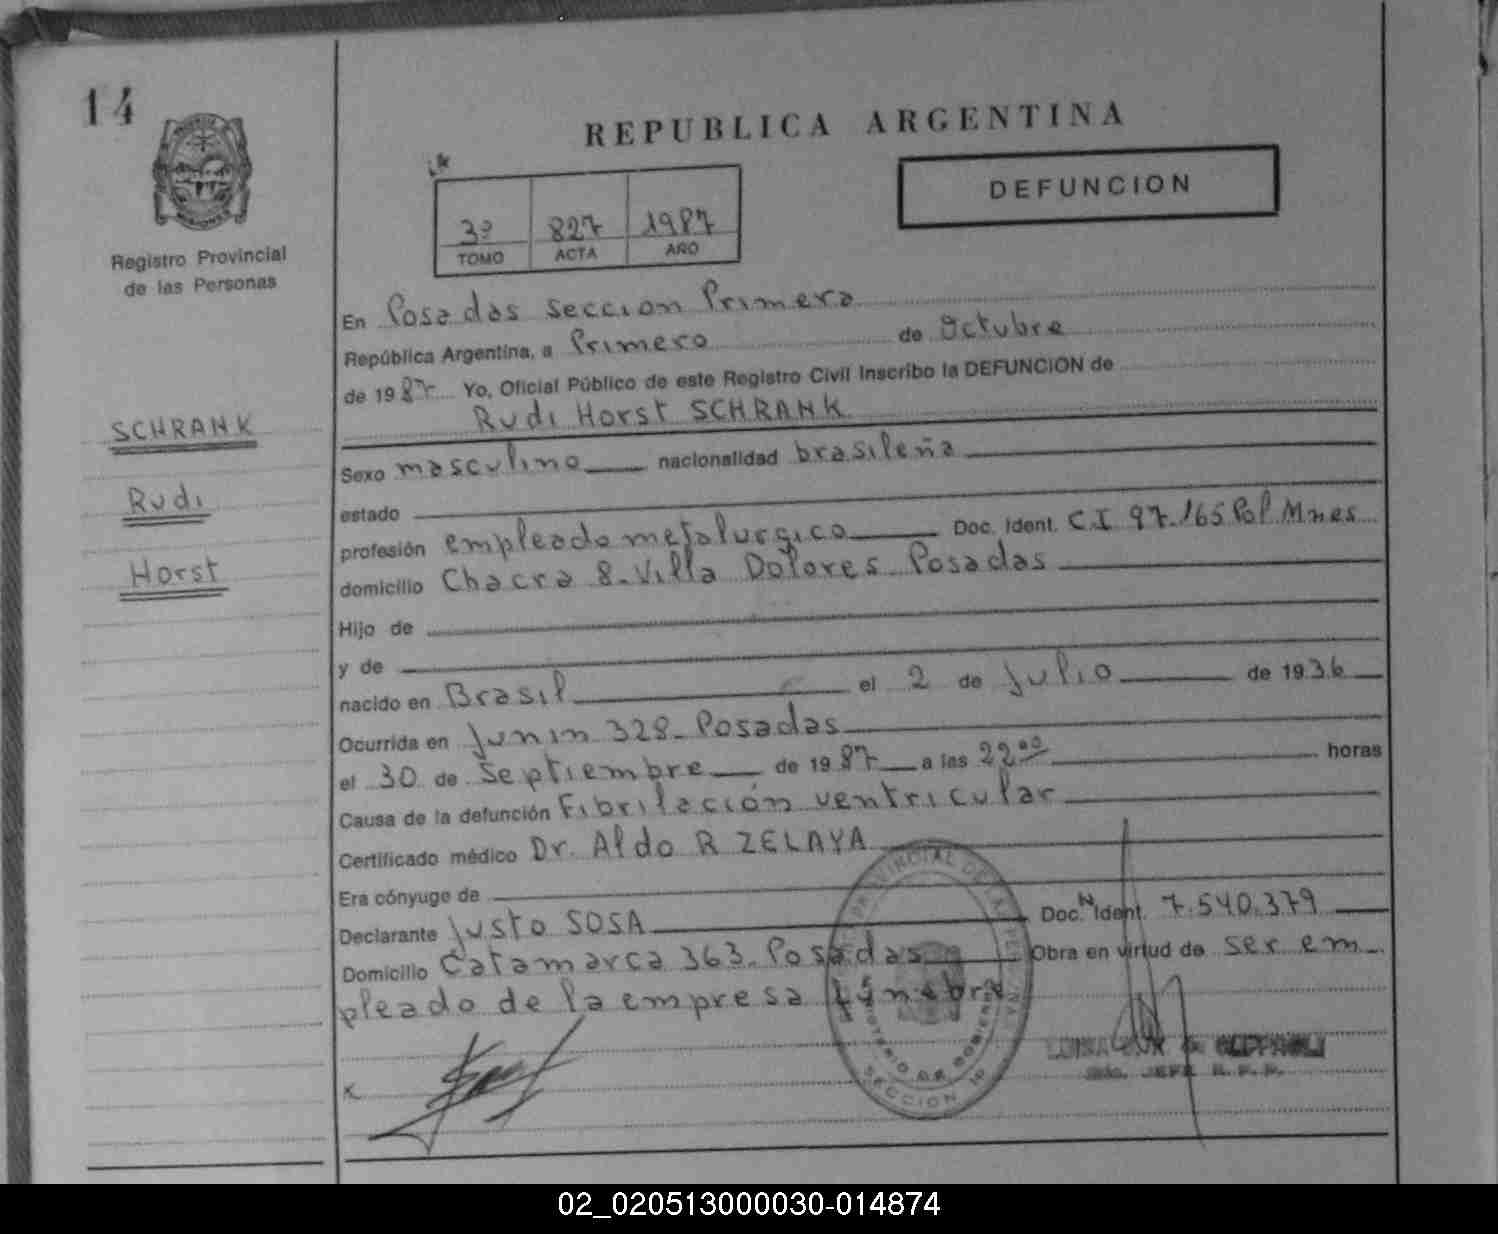 14
REPUBLICA ARGENTINA
DEFUNCION
3º 827 1987
TOMO ACTA AÑO
Registro Provincial
de las Personas
SCHRANK
Rudi
Horst
En Posadas seccion Primera
República Argentina, a Primero de Octubre
de 1987 Yo, Oficial Público de este Registro Civil inscribo la DEFUNCION de
Rudi Horst SCHRANK
Sexo masculino nacionalidad brasileña
estado
profesión empleado metalurgico Doc. Ident. C.I 97.165 Pol. Mnes
domicilio Chacra 8-Villa Dolores Posadas
Hijo de
y de
nacido en Brasil el 2 de Julio de 1936
Ocurrida en Junin 328-Posadas
el 30 de Septiembre de 1987 a las 22ºº horas
Causa de la defunción Fibrilación ventricular
Certificado médico Dr. Aldo R ZELAYA
Era cónyuge de
Declarante Justo SOSA Doc. N Ident. 7.540.379
Domicilio Catamarca 363-Posadas Obra en virtud de ser em
pleado de la empresa fúnebre
PROVINCIAL DE LAS PERSONAS
MINISTERIO DE GOBIERNO
SECCION 1ª
LUISA
JEFE R. P. P.
02_020513000030-014874